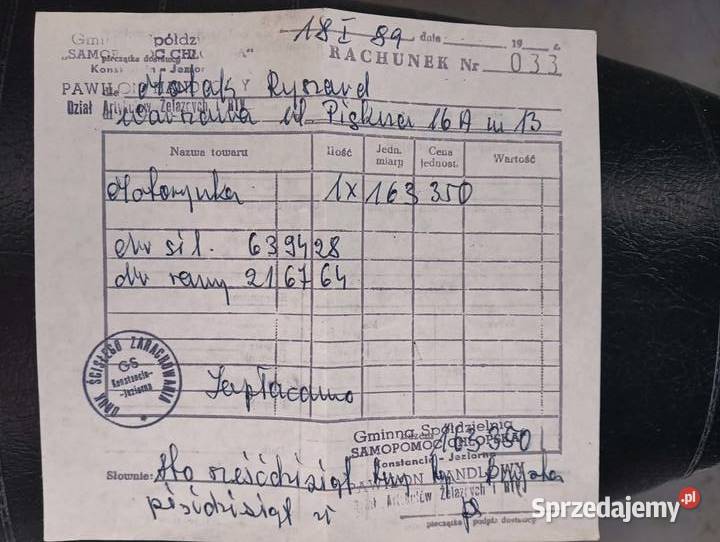 18 I 89 data 19 r.
Gminna Spółdzielnia
„SAMOPOMOC CHŁOPSKA"
pieczątka dostawcy
RACHUNEK Nr 033
Konstancin - Jeziorna
PAWILON
Ryszard
Dział Artykułów Żelaznych i
Warszawa ul. Piękna 16A m 13
Nazwa towaru Ilość Jedn. miary Cena jednost. Wartość
Motorynka 1x 163 350
nr sil. 63 94 28
nr ramy 21 67 64
DRUK ŚCISŁEGO ZARACHOWANIA
GS
Konstancin-
-Jeziorna
Zapłacono
Gminna Spółdzielnia
SAMOPOMOC CHŁOPSKA
163350
Konstancin - Jeziorna
Słownie: Sto sześćdziesiąt trzy
PAWILON HANDLOWY
pięćdziesiąt zł
Dział Artykułów Żelaznych i
pieczątka i podpis dostawcy
Sprzedajemy.pl